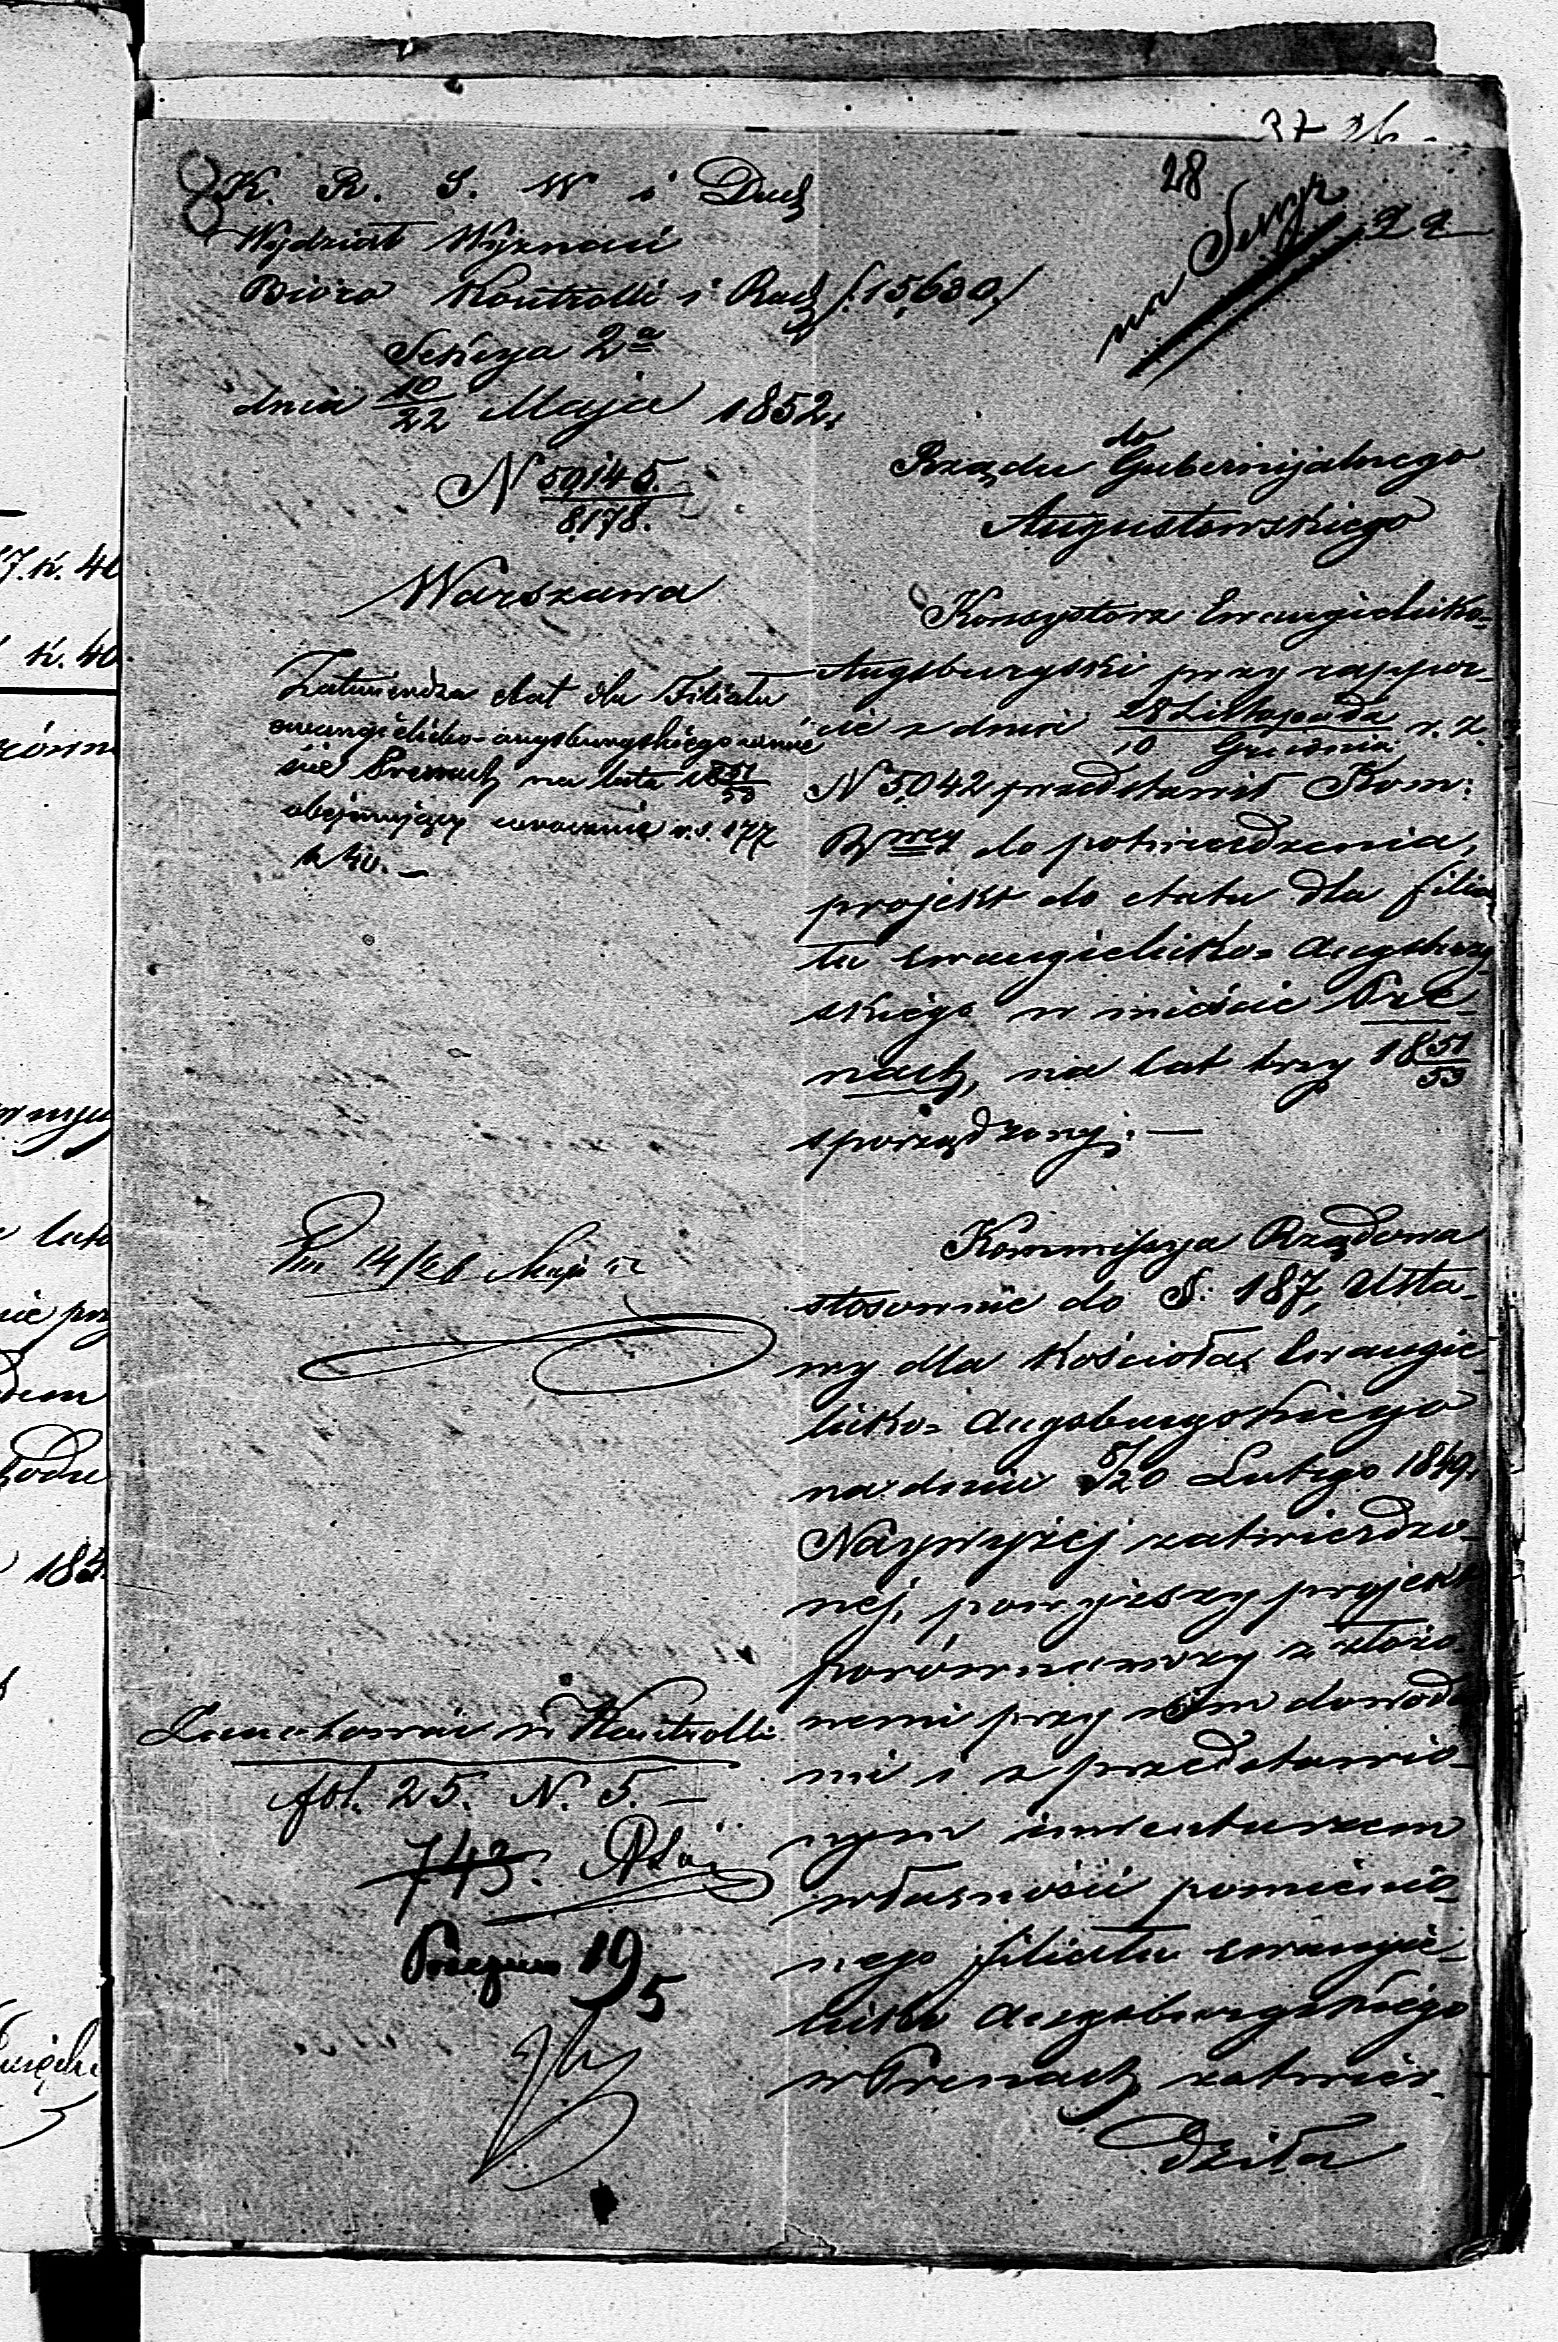 37 26
28
22
K. R. S. W i Duch
Wydział Wyznań
Bióro Kontrolli i Rach /:15,630:/
Sekcya 2a
dnia 10/22 Maja 1852.
N 50,145/8,178.
Warszawa
Zatwierdza etat dla Filiału
ewangelicko-augsburgskiego w mie
ście Prenach na lata 1851/53
obejmujący corocznie r.s. 177
k 40. —
14/26 Maja
w Kontrolli
fol. 25. N. 5. —
743.
19/5
do
Rządu Gubernijalnego
Augustowskiego
Konsystorz Ewangielicko-
Augsburgski przy rappor-
cie z dnia 28 Listopada/10 Grudnia r. z.
N 5,042 przedstawił Kom:
Rwey do potwierdzenia,
projekt do etatu dla filia
łu ewangielicko= Augsburg-
skiego w mieście Pre-
nach, na lat trzy 1851/53
sporządzony. —
Kommissya Rządowa
stosownie do §: 187, Usta-
wy dla Kościoła Ewangie-
licko= Augsburgskiego
na dniu 8/20 Lutego 1849.
Najwyżej zatwierdzo-
nej, powyższy projekt
porównawszy z złożo
nemi przy nim dowoda
mi i z przedstawio-
nym inwentarzem
własności pomienio-
nego filiału ewangie-
licko Augsburgskiego
w Prenach zatwier-
dziła